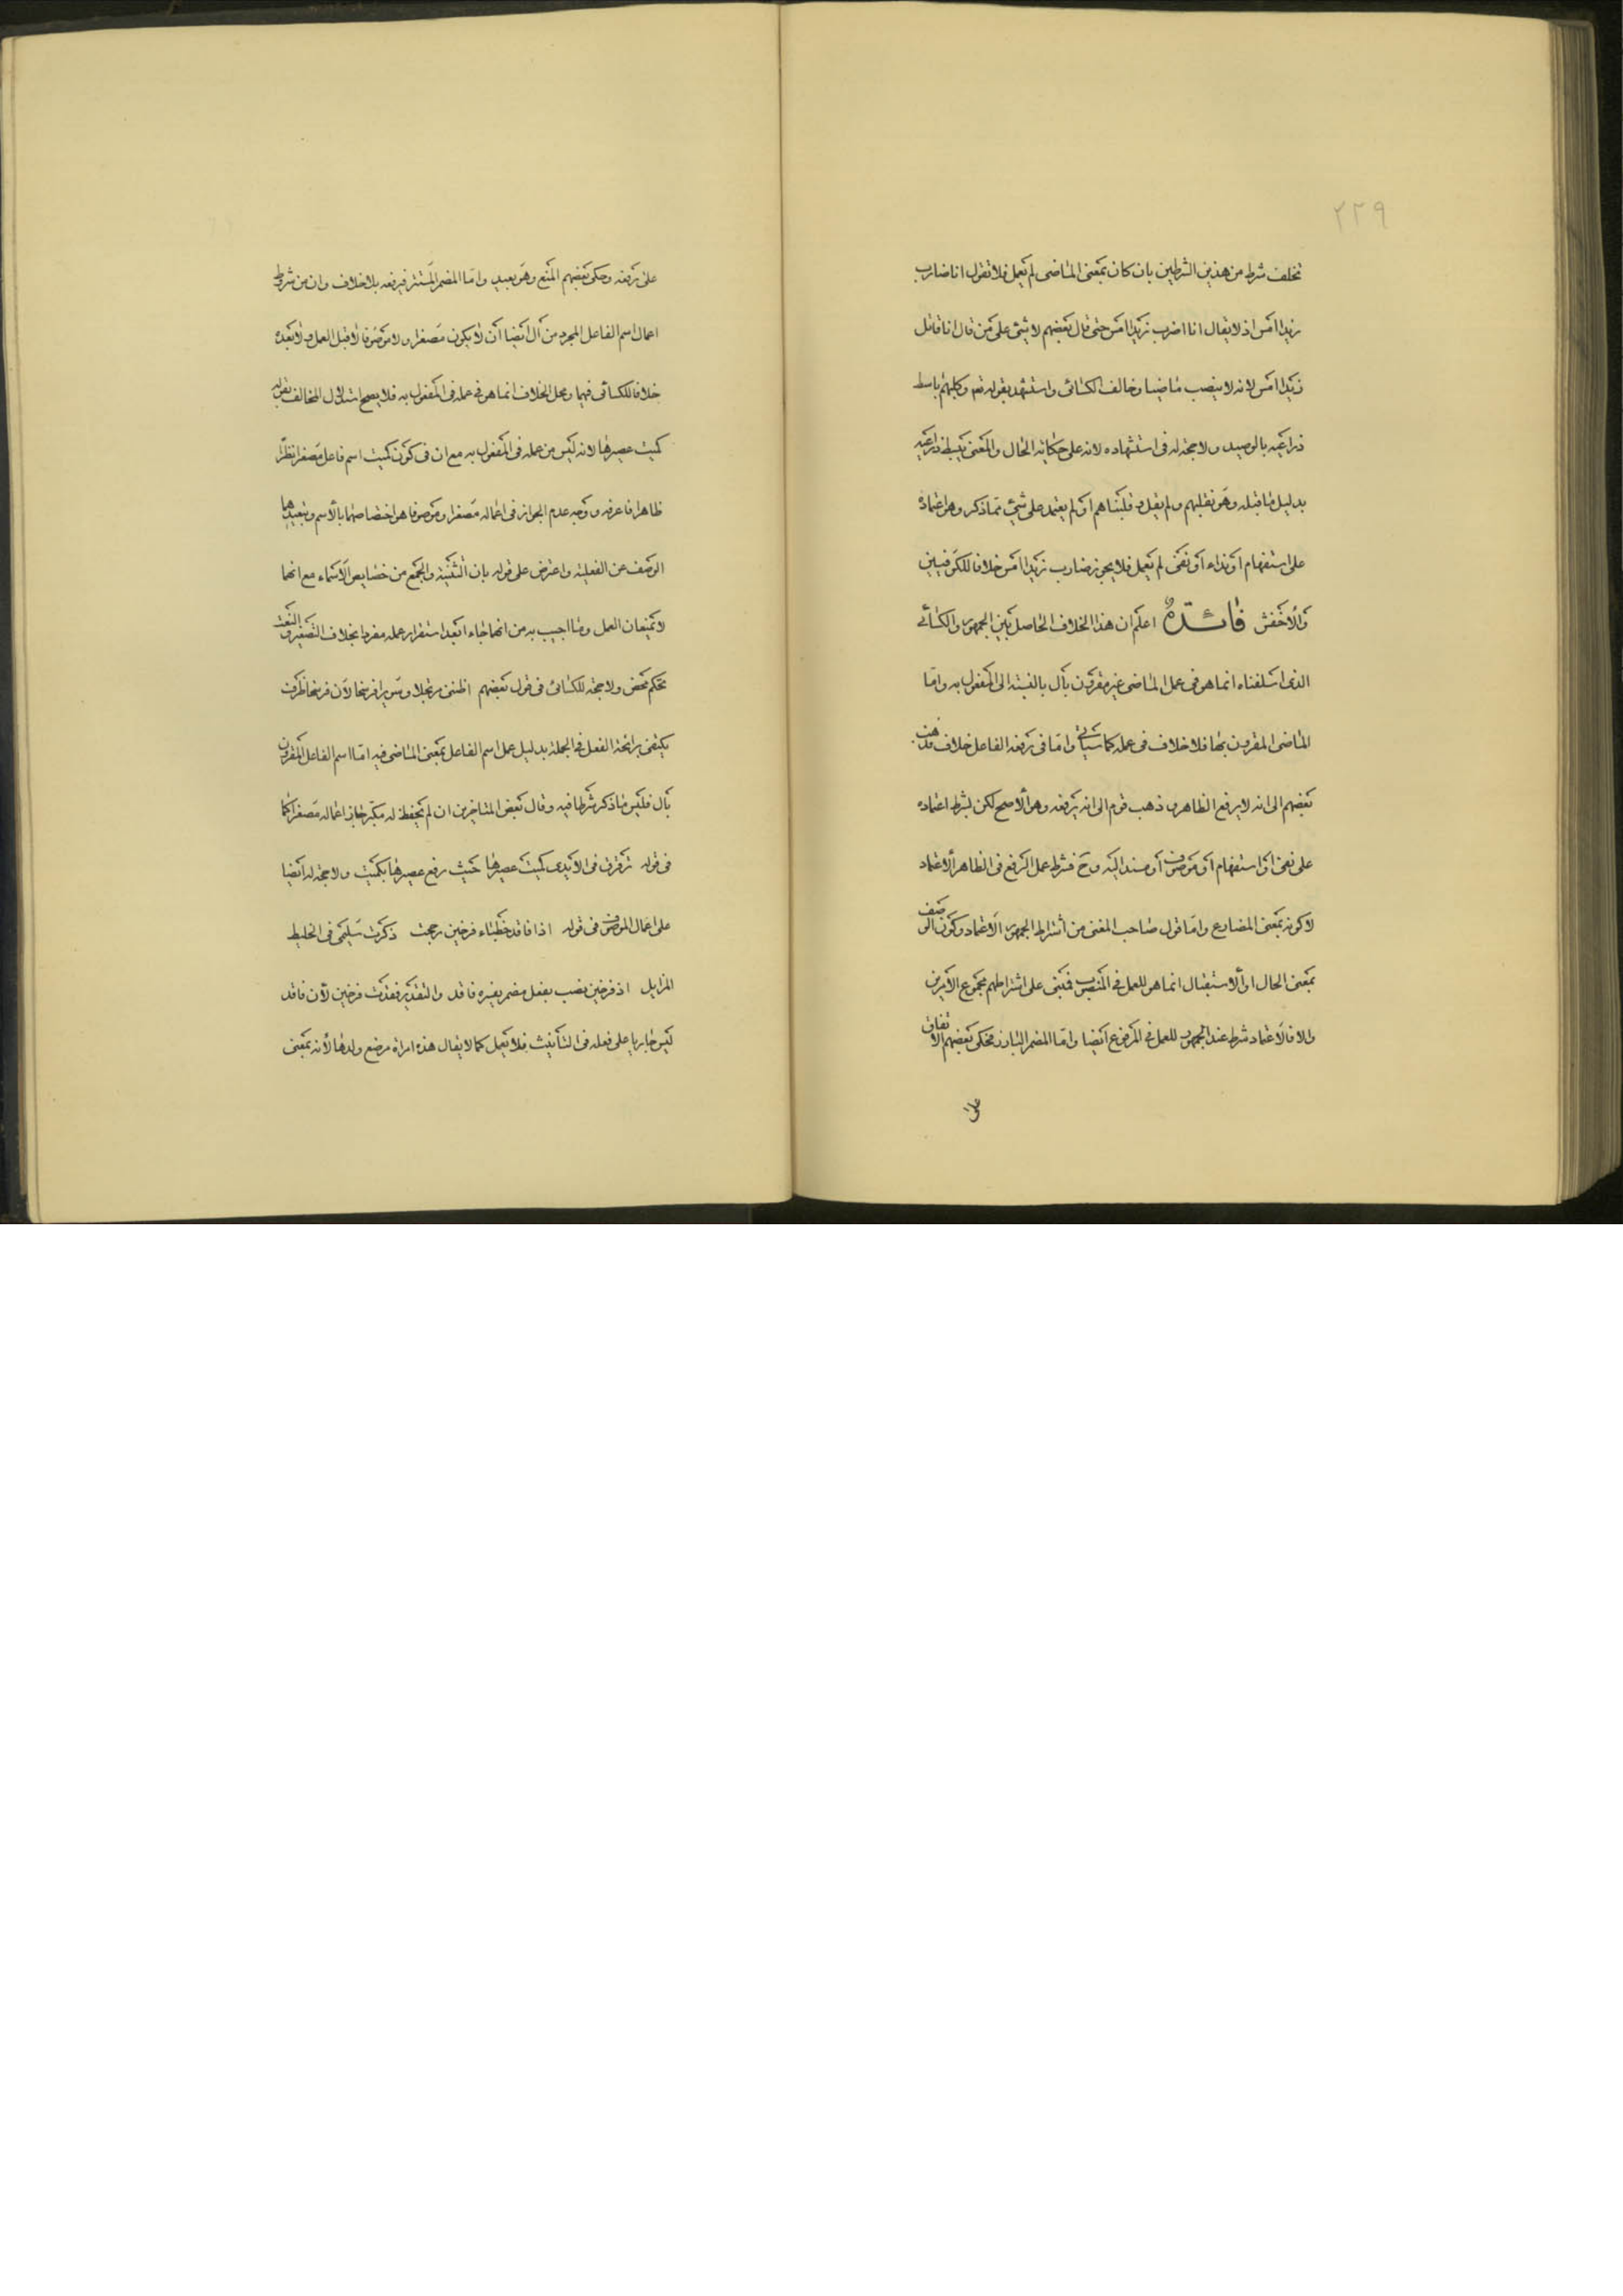 ٢٢٩
تخلف شرط من هذين الشرطين بان كان بمعنى الماضى لم يعمل فلا تقول انا ضارب
زيدا امس اذ لا يقال انا اضرب زيدا امس حتى قال بعضهم لا شئ على من قال انا قاتل
زيدا امس لانه لا ينصب ماضيا وخالف الكسائى واستشهد بقوله تعم وكلبهم باسط
ذراعيه بالوصيد ولا حجة له فى استشهاده لانه على حكاية الحال والمعنى يبسط ذراعيه
بدليل ما قبله وهو نقلبهم ولم يقل وقلبناهم او لم يعتمد على شئ مما ذكر وهو اعتماده
على استفهام او نداء او نفى لم يعمل فلا يجوز ضارب زيدا امس خلافا للكوفيين
والاخفش فائدة اعلم ان هذا الخلاف الحاصل بين الجمهور والكسائى
الذى اسلفناه انما هو فى عمل الماضى غير مقرون بأل بالنسبة الى المفعول به واما
الماضى المقرون بها فلا خلاف فى عمله كما سيأتى واما فى رفعه الفاعل خلاف فذهب
بعضهم الى انه لا يرفع الظاهر وذهب قوم الى انه يرفعه وهو الاصح لكن بشرط اعتماده
على نفى او استفهام او موصوف او مسند اليه وح فشرط عمل الرفع فى الظاهر الاعتماد
لا كونه بمعنى المضارع واما قول صاحب المغنى من اشتراط الجمهور الاعتماد وكون الوصف
بمعنى الحال او الاستقبال انما هو للعمل فى المنصوب فمبنى على اشتراطهم مجموع الامرين
والا فالاعتماد شرط عند الجمهور للعمل فى المرفوع ايضا واما المضمر البارز فحكى بعضهم الاتفاق
على
على رفعه وحكى بعضهم المنع وهو بعيد واما المضمر المستتر فيرفعه بلا خلاف وان من شرط
اعمال اسم الفاعل المجرد من أل ايضا ان لا يكون مصغرا ولا موصوفا لا قبل العمل ولا بعده
خلافا للكسائى فيهما ومحل الخلاف انما هو فى عمله فى المفعول به فلا يصح استدلال المخالف بقوله
كميت عصيرها لانه ليس من عمله فى المفعول به مع ان فى كون كميت اسم فاعل مصغرا نظرا
ظاهرا فاعرفه ووجه عدم الجواز فى اعماله مصغرا وموصوفا هو اختصاصهما بالاسم وتبعيدهما
الوصف عن الفعلية واعترض على قوله بان التثنية والجمع من خصايص الاسماء مع انهما
لا تمنعان العمل وما اجيب به من انهما جاءا بعد استقرار عمله مفردا بخلاف التصغير والنعت
تحكم محض ولا حجة للكسائى فى قول بعضهم اظننى مرتحلا وسويرا فرسخا لان فرسخا ظرف
يكتفى برائحة الفعل فى الجملة بدليل عمل اسم الفاعل بمعنى الماضى فيه اما اسم الفاعل المقرون
بأل فليس ما ذكر شرطا فيه وقال بعض المتاخرين ان لم يحفظ له مكبر جاز اعماله مصغرا كما
فى قوله ترقرق فى الايدى كميت عصيرها حيث رفع عصيرها بكميت ولا حجة له ايضا
على اعمال الموصوف فى قوله اذا فاقد خطباء فرخين رجعت ذكرت سليمى فى الخليط
المزايل اذ فرخين نصب بفعل مضمر يفسره فاقد والتقدير فقدت فرخين لان فاقد
ليس جاريا على فعله فى التأنيث فلا يعمل كما لا يقال هذه امراة مرضع ولدها لانه بمعنى